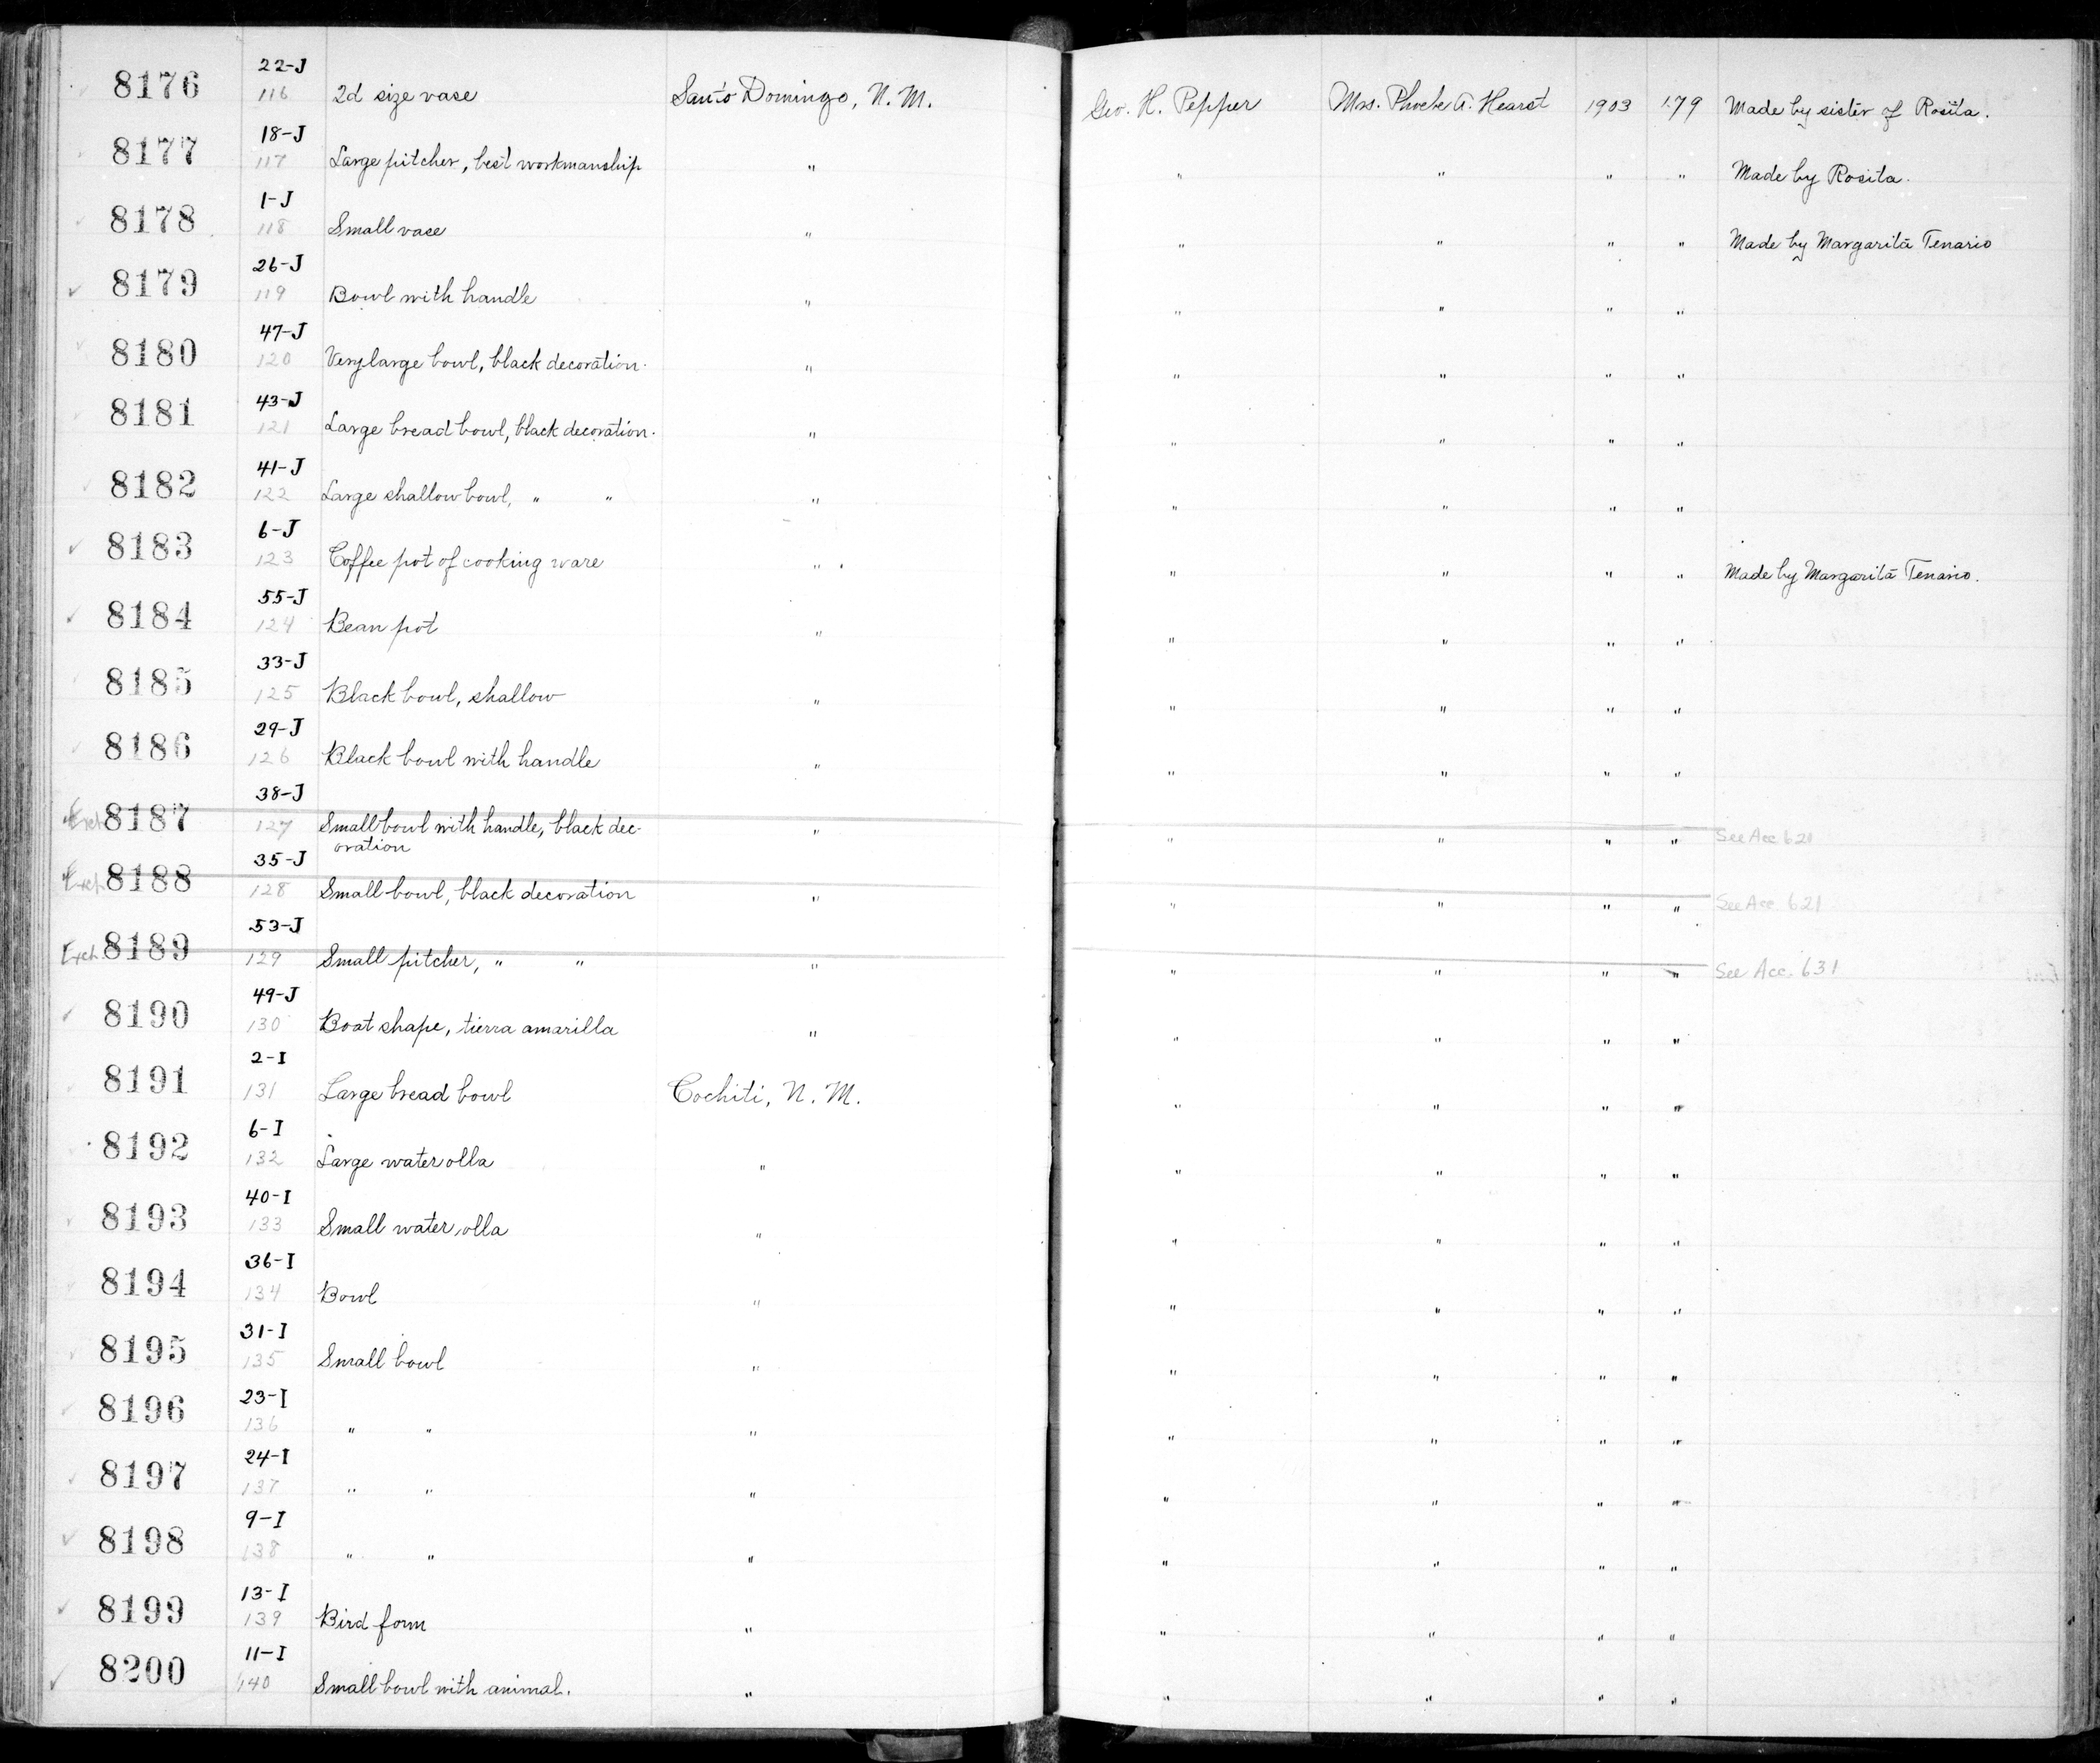 22-J
8176 116 2d size vase Santo Domingo, N. M. Geo. H. Pepper Mrs. Phoebe A. Hearst 1903 179 Made by sister of Rosita.
18-J
8177 117 Large pitcher, best workmanship " " " " " Made by Rosita.
1-J
8178 118 Small vase " " " " " Made by Margarita Tenario
26-J
8179 119 Bowl with handle " " " " "
47-J
8180 120 Very large bowl, black decoration. " " " " "
43-J
8181 121 Large bread bowl, black decoration. " " " " "
41-J
8182 122 Large shallow bowl, " " " " " " "
6-J
8183 123 Coffee pot of cooking ware " " " " " Made by Margarita Tenario.
55-J
8184 124 Bean pot " " " " "
33-J
8185 125 Black bowl, shallow " " " " "
29-J
8186 126 Black bowl with handle " " " " "
38-J
Exch. 8187 127 Small bowl with handle, black dec- " " " " " See Acc 621
oration
35-J
Exch. 8188 128 Small bowl, black decoration " " " " " See Acc. 621
53-J
Exch. 8189 129 Small pitcher, " " " " " " " See Acc. 631
49-J
8190 130 Boat shape, tierra amarilla " " " " "
2-I
8191 131 Large bread bowl Cochiti, N. M. " " " "
6-I
8192 132 Large water olla " " " " "
40-I
8193 133 Small water olla " " " " "
36-I
8194 134 Bowl " " " " "
31-I
8195 135 Small bowl " " " " "
23-I
8196 136 " " " " " " "
24-I
8197 137 " " " " " " "
9-I
8198 138 " " " " " " "
13-I
8199 139 Bird form " " " " "
11-I
8200 140 Small bowl with animal. " " " " "